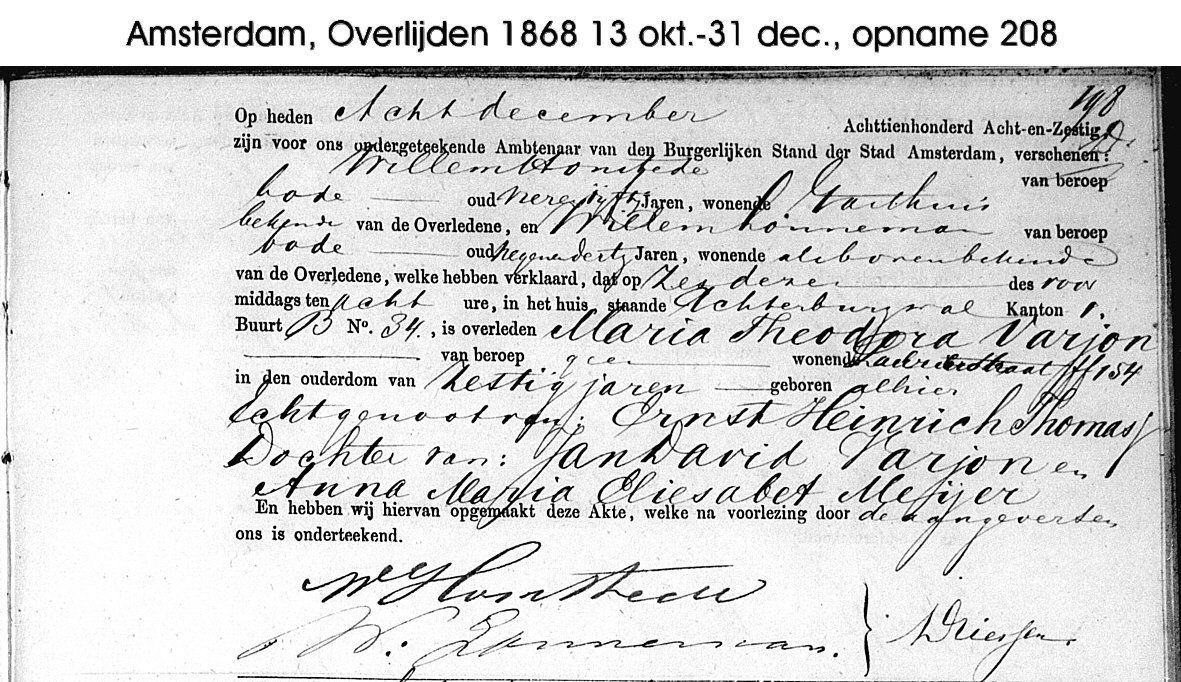 Amsterdam, Overlijden 1868 13 okt.-31 dec., opname 208
198
Op heden Acht december Achttienhonderd Acht-en-Zestig,
zijn voor ons ondergeteekende Ambtenaar van den Burgerlijken Stand der Stad Amsterdam, verschenen:
Willem van beroep
bode oud Jaren, wonende
bekende van de Overledene, en Willem van beroep
bode oud Jaren, wonende alhier bekende
van de Overledene, welke hebben verklaard, dat op Zes dezer des voor
middags ten acht ure, in het huis, staande Achterburgwal Kanton 1.
Buurt B No. 34., is overleden Maria Theodora Varjon
van beroep geen wonende 154
in den ouderdom van Zestig jaren geboren alhier
Echtgenoot van: Ernst Heinrich Thomas,
Dochter van: Jan David Varjon en
Anna Maria Eliesabet Meijer
En hebben wij hiervan opgemaakt deze Akte, welke na voorlezing door de aangevers en
ons is onderteekend.